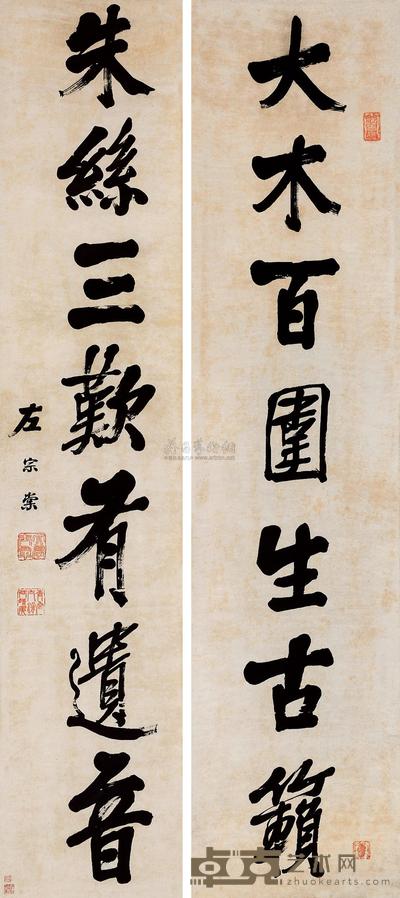 大木百圍生古籟
朱絲三歎有遺音
左宗棠
卓克艺术网
zhuokearts.com